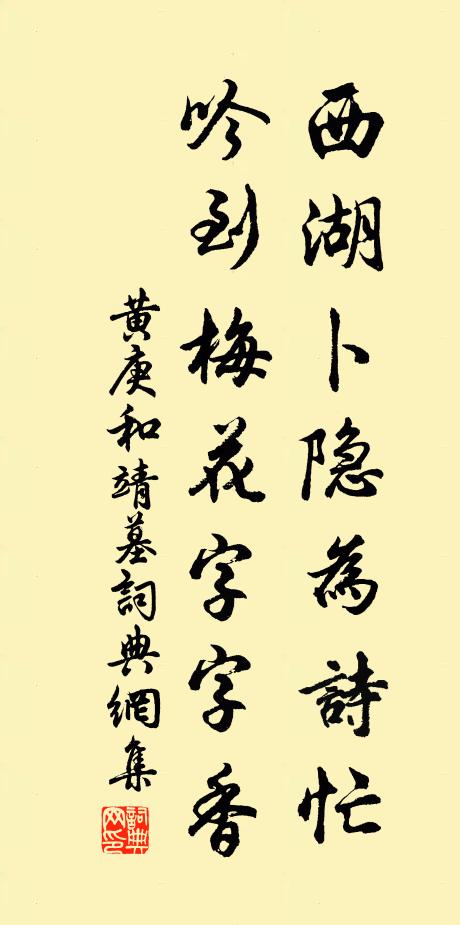 西湖卜隐為詩忙
吟到梅花字字香
黄庚和靖墓詞典網集
詞典网印